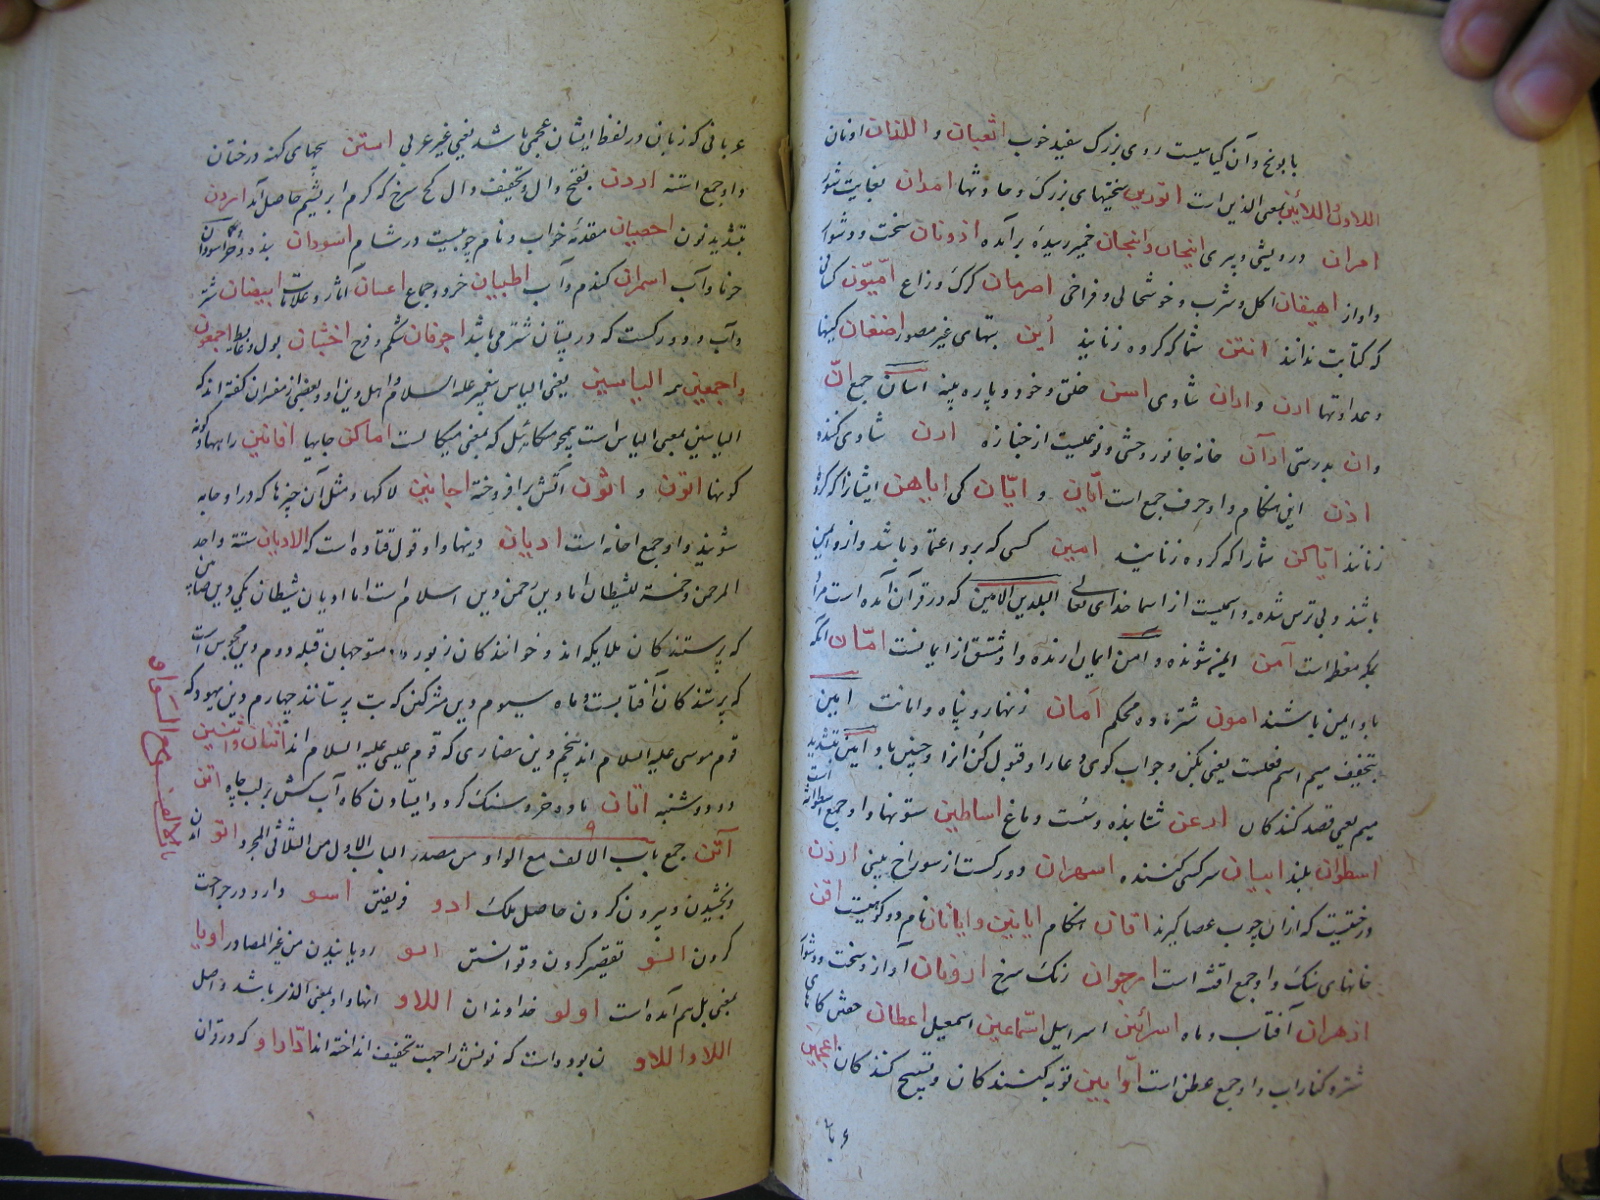 بابونج وآن کیاهیست روی بزرک سفید خوب اثعبان و اللذان اونان
اللاون اللائین بمعنی الذین است اتورین سختیهای بزرک وحادثها امدان بغایت شور
امران درویشی وپیری انبجان وانبجان خمیر رسیده برآمده ازونان سخت ودشوار
واواز اهیقان اکل وشرب وخوشحالی وفراخی اصرمان کرک وزاغ امیّون کسانی
که کتابت ندانند انتن شما که کروه زنانید این بتهای غیر مصور اضغان کینها
وعداوتها ادن وادان شادی اسن خلق وخود وپاره پینه اسان جمع انّ
وان بدرستی ارآن خانه جانور وحشی ونوعیست از جنازه ارن شادی کننده
اذن این هنکام واو حرف جمع است ایّان و ایّان کی ایاهن ایشانرا که کروه
زنانند ایّاکن شما را که کروه زنانید امین کسی که برو اعتماد باشد وازو ایمن
باشند وبی ترس شده واسمیست از اسماء خدای تعالی البلد الامین که در قرآن آمده است مراد
مکه معظمه است آمن ایمن شونده و آمن ایمان ارنده واو مشتق از ایمانست امّان آنکه
باو ایمن باشند امون شتر ماده محکم امان زنهار وپناه وامانت امین
بتخفیف میم اسم فعلست یعنی بکن وجواب کوی دعا را وقبول کن انرا وچنین باد وامین بتشدید
میم یعنی قصد کنندکان ارعن شتابنده وسست دماغ اساطین ستونها واو جمع اسطوانه است
اسطوان بلند ابیان سرکسی کشنده اسهران دو رکست از سوراخ بینی ارزن
درختیست که ازان چوب عصا کیرند اقان هنکام ابانین وابانان نام دو کوهیست اقن
خانهای سنک واو جمع اقنه است ارجوان رنک سرخ ارونان آواز وسخت ودشوار
ازهران آفتاب وماه اسرائین اسرائیل اسماعین اسمعیل اعطان حوض کاه
شتر وکنار اب واو جمع عطن است اوّابین توبه کنندکان وتسبیح کنندکان اعجمین
ء با
ء بانی که زبان ودر لفظ ایشان عجمی باشد یعنی غیر عربی استن بیخهای کهنه درختان
واو جمع استنه اردن بفتح وال وتخفیف وال کج سرخ که کرم ابریشم حاصل آید اردن
بتشدید نون احصبان مقدمه خواب ونام چوبیست در شام اسودان بزه ودو مار سودان
خرما وآب اسمران کندم وآب اطیبان خر وجماع اعسان آثار وعلامات ابیضان شیر
وآب ودو رکست که در پستان شتر می باشد اجوفان شکم وفرج اخبثان بول وغایط اجمعون
واجمعین همه الیاسین یعنی الیاس پیغمبر علیه السلام واهل دین او وبعضی از مفسران کفته اند که
الیاسین بمعنی الیاس است همچو میکائیل که بمعنی میکالست اماکن جایها افانین راهها وکونه
کونها اتون و اتّون آتش بر افروخته اجانین لاکها ومثل آن چیزها که در او جامه
شویند واو جمع اجانه است ادیان دینها واو قول قتاده است که الادیان ستة واحد
الرحمن وخمسة للشیطان اما دین رحمن دین اسلام است اما ادیان شیطان یکی دین صابئین
که پرستندکان ملایکه اند وخوانندکان زبور و متوجهان قبله دوم دین مجوس است
که پرستندکان آفتابست وماه سیوم دین مشرکین که بت پرستانند چهارم دین یهود که
قوم موسی علیه السلام اند پنجم دین نصاری که قوم عیسی علیه السلام اند اثنان واثنین
دو ودوشنبه اتان ماده خر وسنک کرد وایستادن کاه آب کش بر لب چاه اتن
آتن جمع باب الالف مع الواو من مصدر الباب الاول من الثلاثی المجرد اتو
وبخشیدن وبیرون کردن حاصل ملک ادو فریفتن اسو دارو در جراحت
کردن الو تقصیر کردن وتوانستن امو رویانیدن من غیر المصادر اویا
بمعنی بل هم آمده است اولو خداوندان اللاو انها واو بمعنی الذین باشد واصل
اللاو اللاو ن بود واست که نونش را جهت تخفیف انداخته اند اذا داو که دران
باب الالف مع الواو